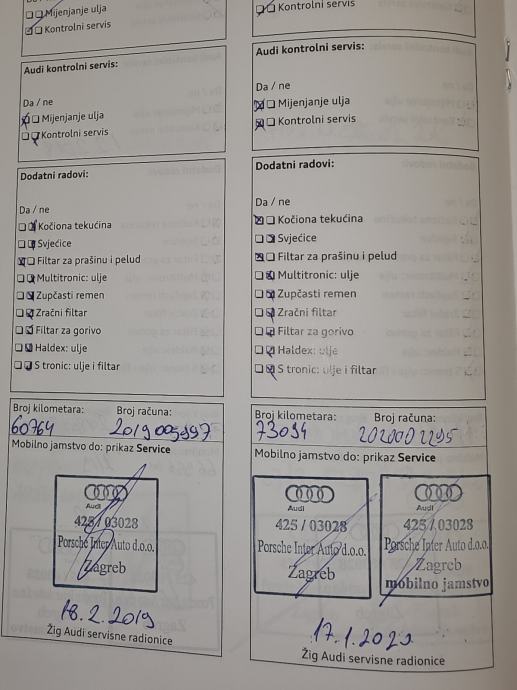 Mijenjanje ulja
Kontrolni servis
Audi kontrolni servis:
Da / ne
Mijenjanje ulja
Kontrolni servis
Dodatni radovi:
Da / ne
Kočiona tekućina
Svjećice
Filtar za prašinu i pelud
Multitronic: ulje
Zupčasti remen
Zračni filtar
Filtar za gorivo
Haldex: ulje
S tronic: ulje i filtar
Broj kilometara: Broj računa:
60764 2019005997
Mobilno jamstvo do: prikaz Service
Audi
425 / 03028
Porsche Inter Auto d.o.o.
Zagreb
18.2.2019
Žig Audi servisne radionice
Kontrolni servis
Audi kontrolni servis:
Da / ne
Mijenjanje ulja
Kontrolni servis
Dodatni radovi:
Da / ne
Kočiona tekućina
Svjećice
Filtar za prašinu i pelud
Multitronic: ulje
Zupčasti remen
Zračni filtar
Filtar za gorivo
Haldex: ulje
S tronic: ulje i filtar
Broj kilometara: Broj računa:
73094
Mobilno jamstvo do: prikaz Service
Audi
425 / 03028
Porsche Inter Auto d.o.o.
Zagreb
Audi
425 / 03028
Porsche Inter Auto d.o.o.
Zagreb
mobilno jamstvo
17.1.2020
Žig Audi servisne radionice